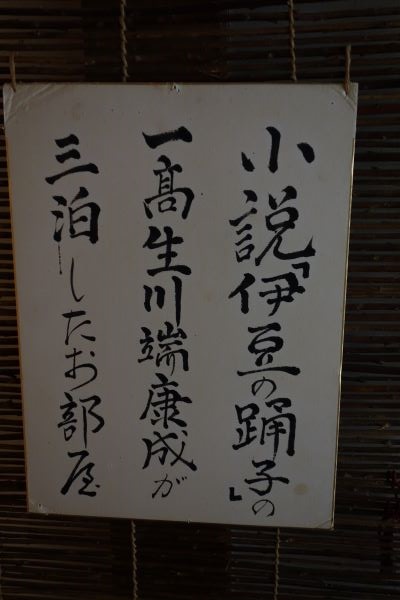 小説「伊豆の踊子」の
一髙生川端康成が
三泊したお部屋